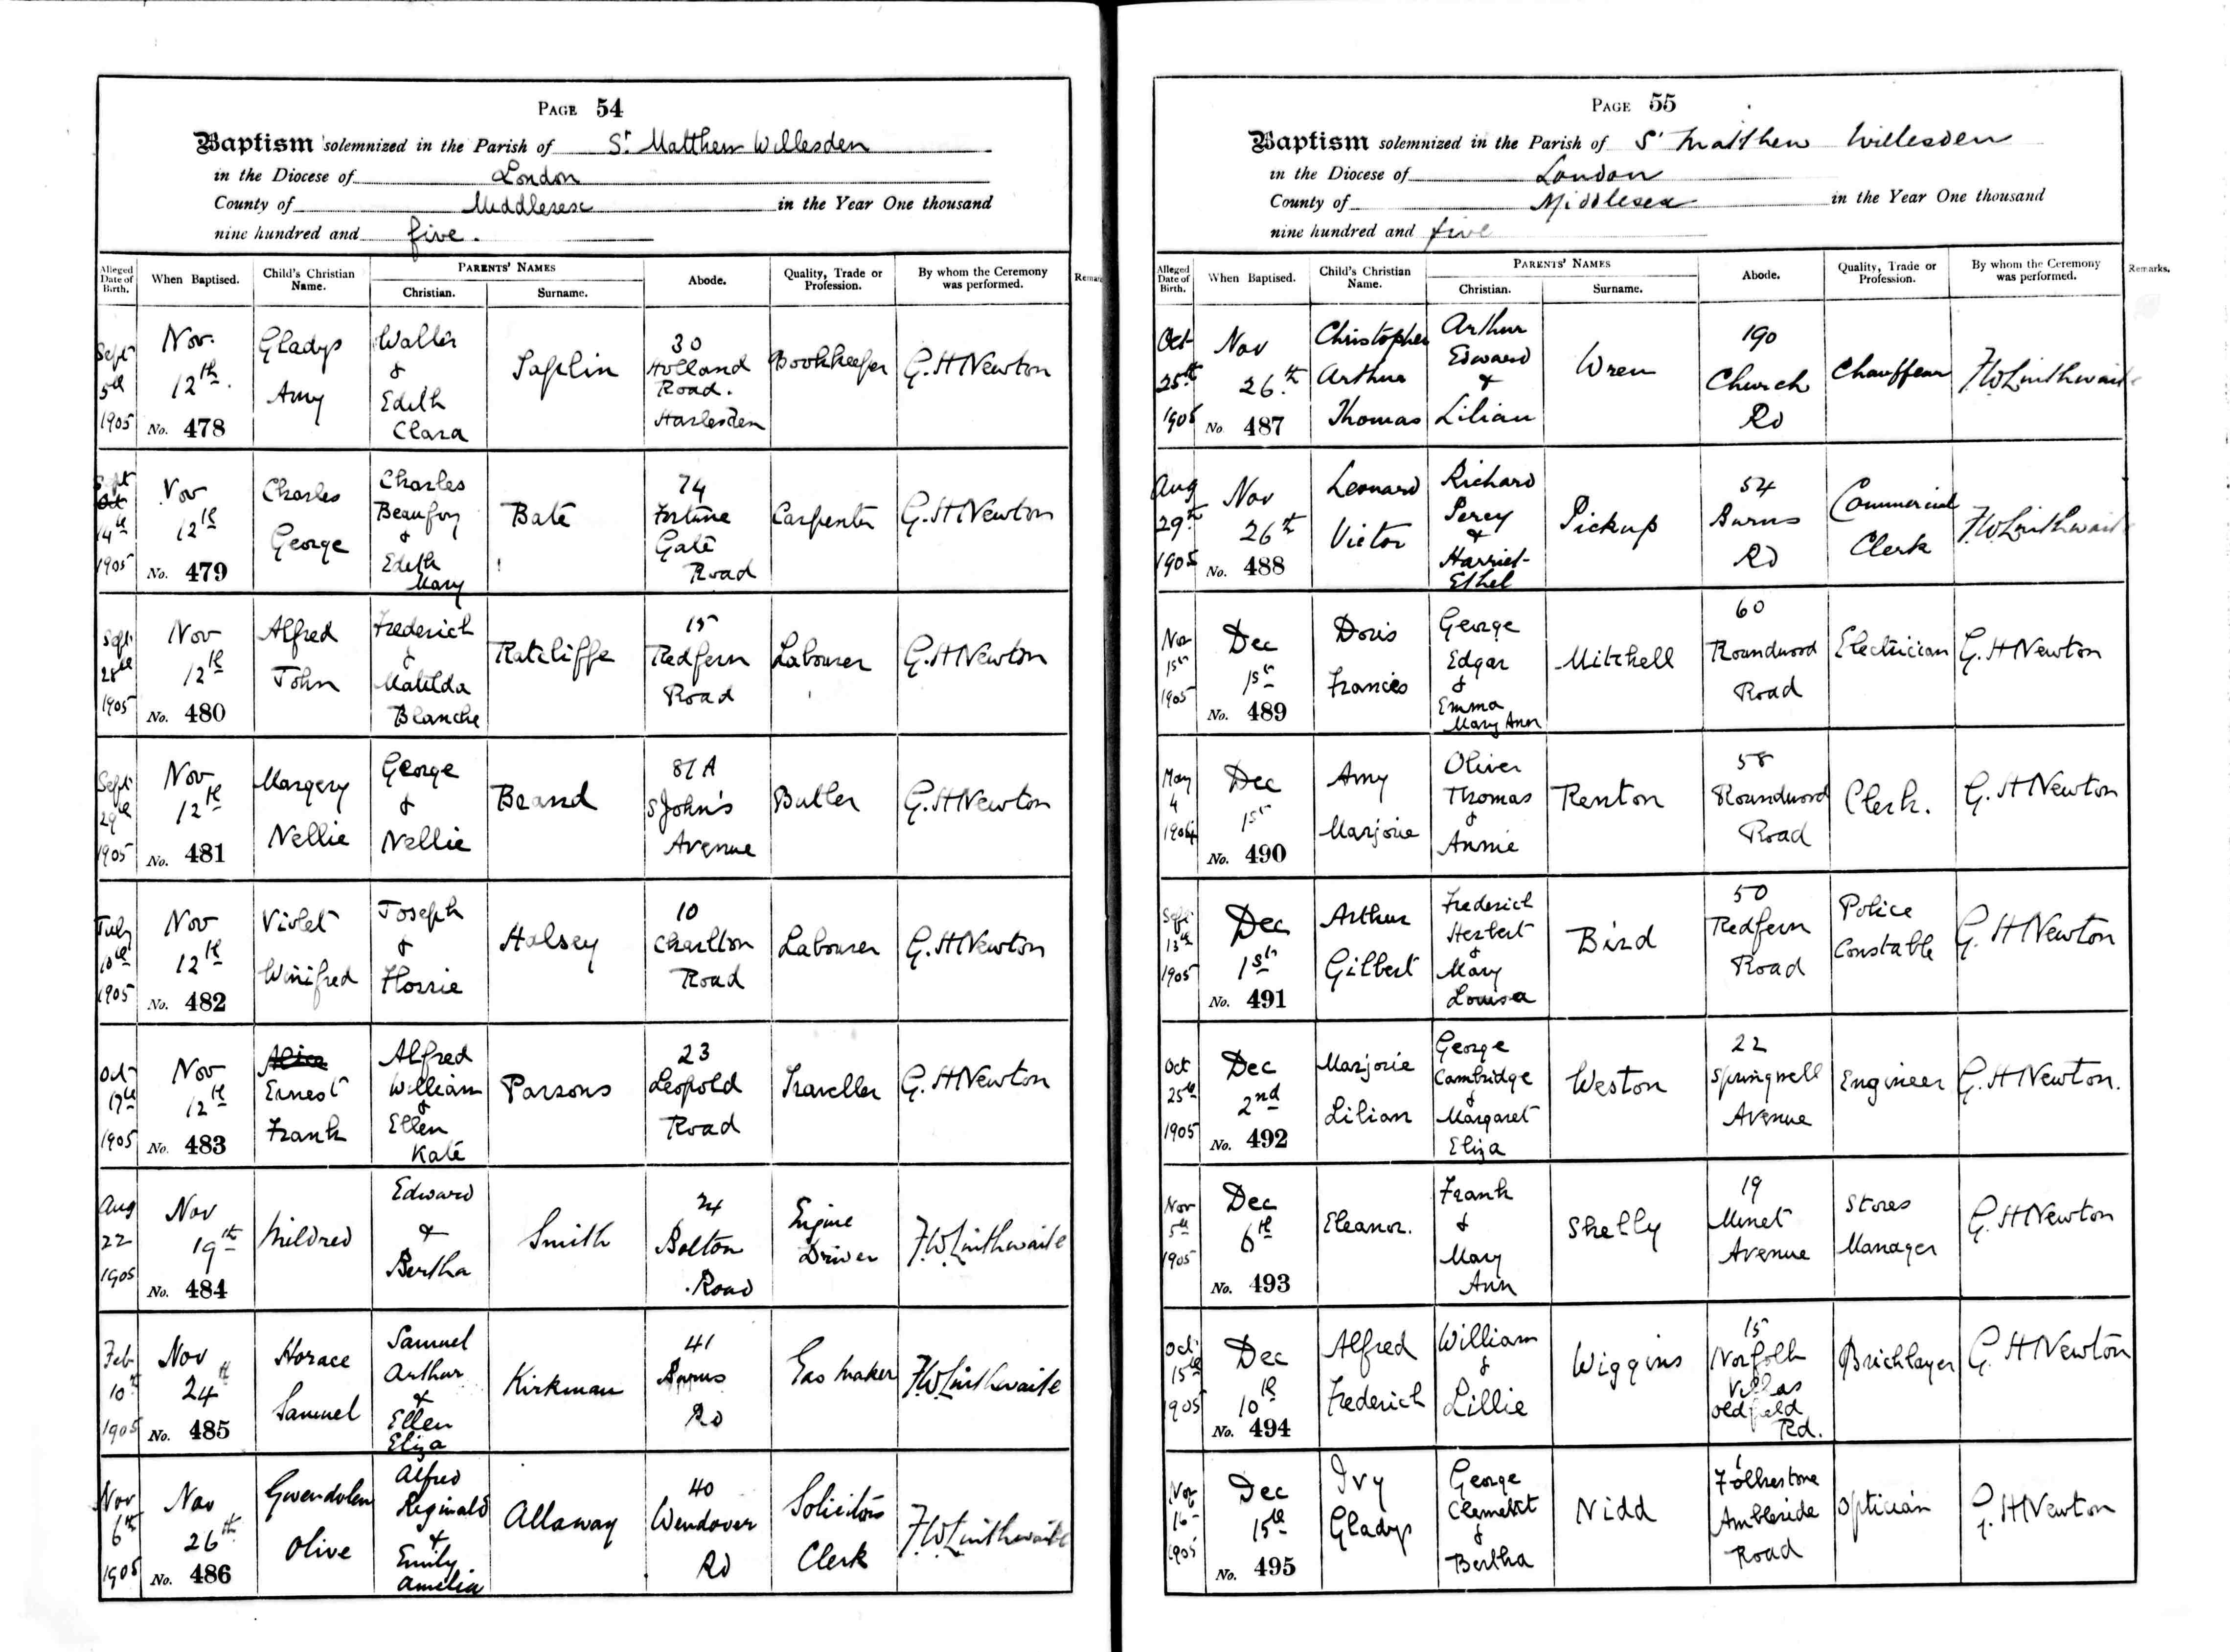 PAGE 54
Baptism solemnized in the Parish of St. Matthew Willesden
in the Diocese of London
County of Middlesex in the Year One thousand
nine hundred and five.
Alleged Date of Birth. When Baptised. Child's Christian Name. PARENTS' NAMES Christian. Surname. Abode. Quality, Trade or Profession. By whom the Ceremony was performed.
Sept 5th 1905 Nov. 12th. No. 478 Gladys Amy Walter & Edith Clara Taplin 30 Holland Road. Harlesden Bookkeeper G. H Newton
Sept 14th 1905 Nov 12th No. 479 Charles George Charles Beaufoy & Edith Mary Bate 74 Fortune Gate Road Carpenter G. H Newton
Sept 28th 1905 Nov 12th No. 480 Alfred John Frederick & Matilda Blanche Ratcliffe 15 Redfern Road Labourer G. H Newton
Sept 29th 1905 Nov 12th No. 481 Margery Nellie George & Nellie Brand 81A S John's Avenue Butler G. H Newton
July 10th 1905 Nov 12th No. 482 Violet Winifred Joseph & Florrie Halsey 10 Charlton Road Labourer G. H Newton
Oct 17th 1905 Nov 12th No. 483 Alice Ernest Frank Alfred William & Ellen Kate Parsons 23 Leopold Road Traveller G. H Newton
Aug 22 1905 Nov 19th No. 484 Mildred Edward & Bertha Smith 24 Bolton Road Engine Driver F. W. Linthwaite
Feb 10th 1905 Nov 24th No. 485 Horace Samuel Samuel Arthur & Ellen Eliza Kirkman 41 Burns Rd Gas maker F. W. Linthwaite
Nov 6th 1905 Nov 26th No. 486 Gwendolen Olive Alfred Reginald & Emily Amelia Allaway 40 Wendover Rd Solicitors Clerk F. W. Linthwaite
PAGE 55
Baptism solemnized in the Parish of St Matthew Willesden
in the Diocese of London
County of Middlesex in the Year One thousand
nine hundred and five
Alleged Date of Birth. When Baptised. Child's Christian Name. PARENTS' NAMES Christian. Surname. Abode. Quality, Trade or Profession. By whom the Ceremony was performed. Remarks.
Oct 25th 1905 Nov 26th No. 487 Christopher Arthur Thomas Arthur Edward & Lilian Wren 190 Church Rd Chauffeur F. W. Linthwaite
Aug 29th 1905 Nov 26th No. 488 Leonard Victor Richard Percy & Harriet Ethel Pickup 54 Burns Rd Commercial Clerk F. W. Linthwaite
Nov 1st 1905 Dec 1st No. 489 Doris Frances George Edgar & Emma Mary Ann Mitchell 60 Roundwood Road Electrician G. H Newton
May 4 1904 Dec 1st No. 490 Amy Marjorie Oliver Thomas & Annie Renton 58 Roundwood Road Clerk. G. H Newton
Sept 13th 1905 Dec 1st No. 491 Arthur Gilbert Frederick Herbert & Mary Louisa Bird 50 Redfern Road Police Constable G. H Newton
Oct 25th 1905 Dec 2nd No. 492 Marjorie Lilian George Cambridge & Margaret Eliza Weston 22 Springwell Avenue Engineer G. H Newton.
Nov 5th 1905 Dec 6th No. 493 Eleanor. Frank & Mary Ann Shelly 19 Minet Avenue Stores Manager G. H Newton
Oct 15th 1905 Dec 10th No. 494 Alfred Frederick William & Lillie Wiggins 15 Norfolk Villas Oldfield Rd. Bricklayer G. H Newton
Nov 16 1905 Dec 15th No. 495 Ivy Gladys George Clement & Bertha Nidd Folkestone Ambleside Road Optician G. H Newton